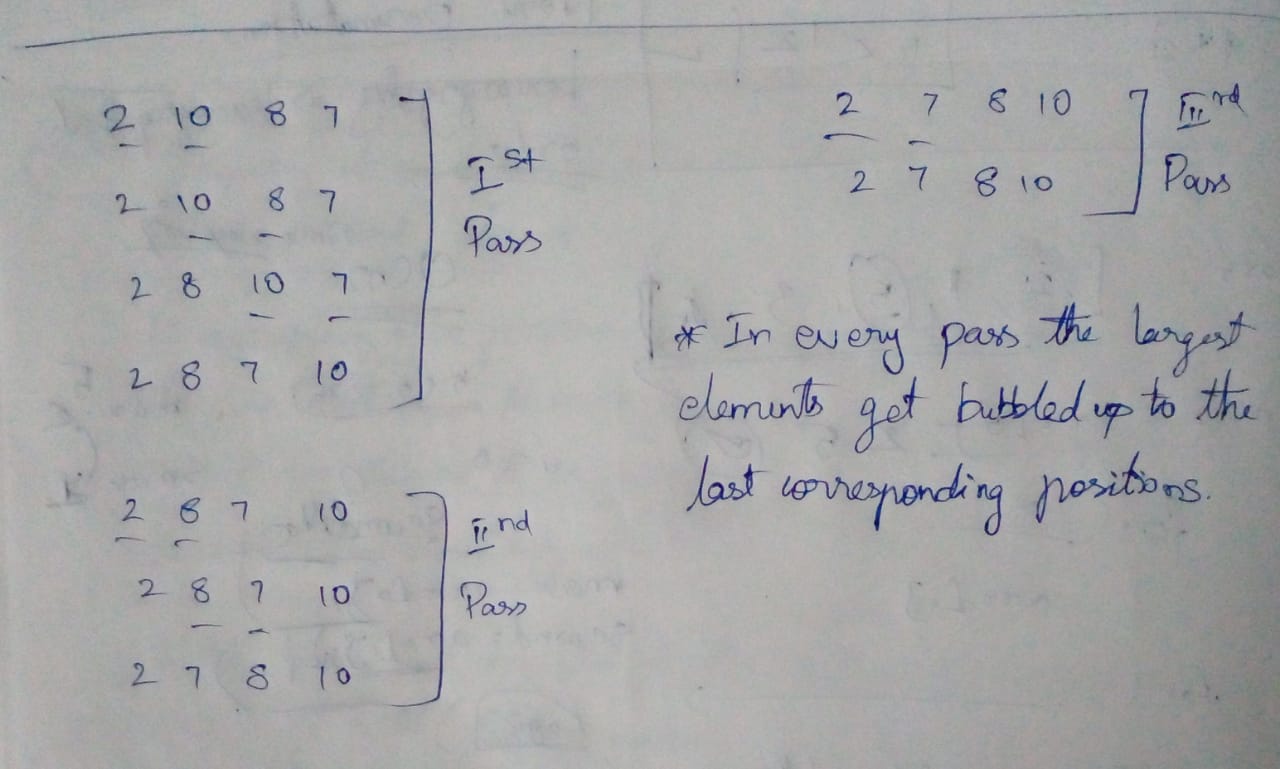 2 10 8 7
2 10 8 7
2 8 10 7
2 8 7 10
I st
Pass
2 8 7 10
2 8 7 10
2 7 8 10
II nd
Pass
2 7 8 10
2 7 8 10
III rd
Pass
* In every pass the largest
elements get bubbled up to the
last corresponding positions.